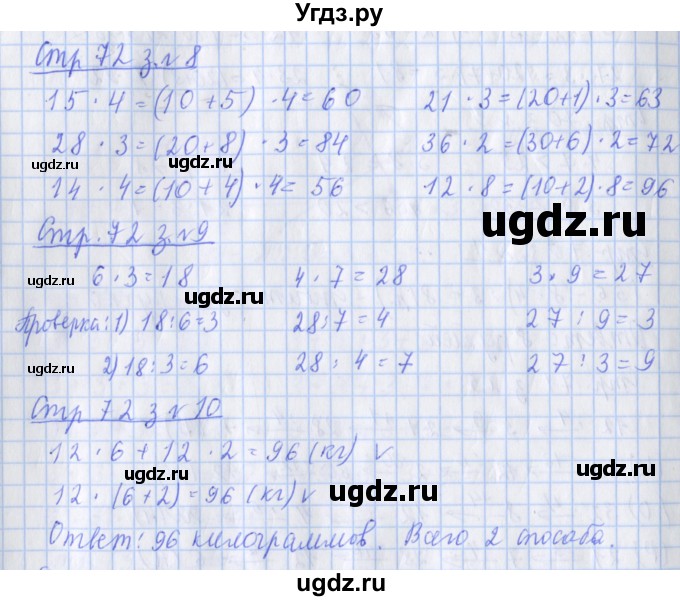 Угдз.ру
Стр 72 з.№8
15 · 4 = (10 + 5) · 4 = 60 21 · 3 = (20+1) · 3 = 63
28 · 3 = (20+8) · 3 = 84 36 · 2 = (30+6) · 2 = 72
ugdz.ru ugdz.ru
14 · 4 = (10 + 4) · 4 = 56 12 · 8 = (10+2) · 8 = 96
ugdz.ru
Стр. 72 з.№9 ugdz.ru
ugdz.ru 6 · 3 = 18 4 · 7 = 28 3 · 9 = 27
ugdz.ru
Проверка: 1) 18:6=3 28:7 = 4 27 : 9 = 3
ugdz.ru
ugdz.ru 2) 18:3=6 28 : 4 = 7 27 : 3 = 9
ugdz.ru
Стр 72 з №10
12 · 6 + 12 · 2 = 96 (кг) v
ugdz.ru ugdz.ru
12 · (6+2) = 96 (кг) v ugdz.ru
Ответ: 96 килограммов. Всего 2 способа.
ugdz.ru
ugdz.ru